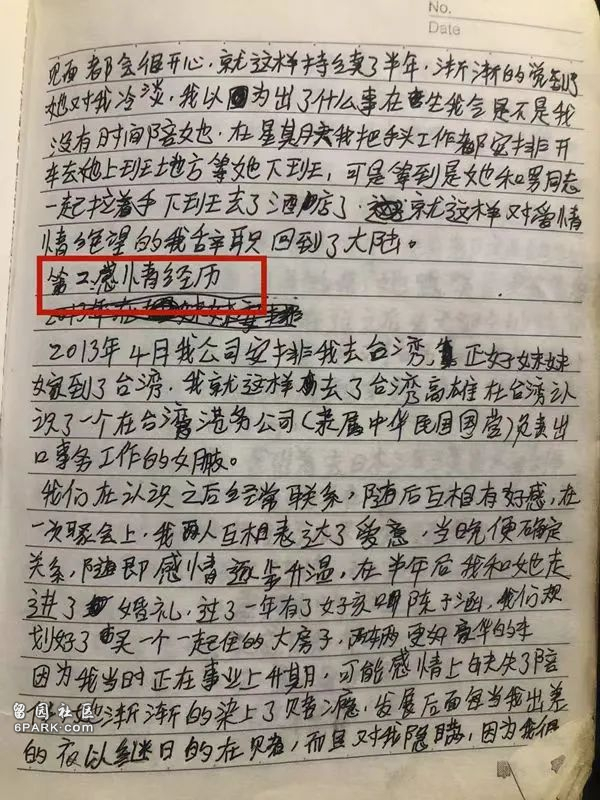 No.
Date
见面都会很开心,就这样持续了半年,渐渐的觉到了
她对我冷淡,我以为出了什么事在生我气是不是我
没有时间陪她,在星期天我把手头工作都安排开
车去她上班地方等她下班,可是等到是她和男同志
一起拉着手下班去了酒店了,就这样对爱情
情绝望的我辞职回到了大陆。
第二感情经历
2013年4月我公司安排我去台湾,正好妹妹
嫁到了台湾,我就这样去了台湾高雄在台湾认
识了一个在台湾港务公司(隶属中华民国国营)负责出
口事务工作的女朋。
我们在认识之后经常联系,随后互相有好感,在
一次聚会上,我两人互相表达了爱意,当晚便确定
关系,随即感情逐步升温,在半年后我和她走
进了婚礼,过了一年有了女孩叫陈子涵,我们规
划好了买一个一起住的大房子,两辆更好豪华的车
因为我当时正在事业上升期,可能感情上缺失了陪
她渐渐的染上了赌瘾,发展后面每当我出差
的夜以继日的在贝者,而且对我隐瞒,因为我们
留园社区
6PARK.COM